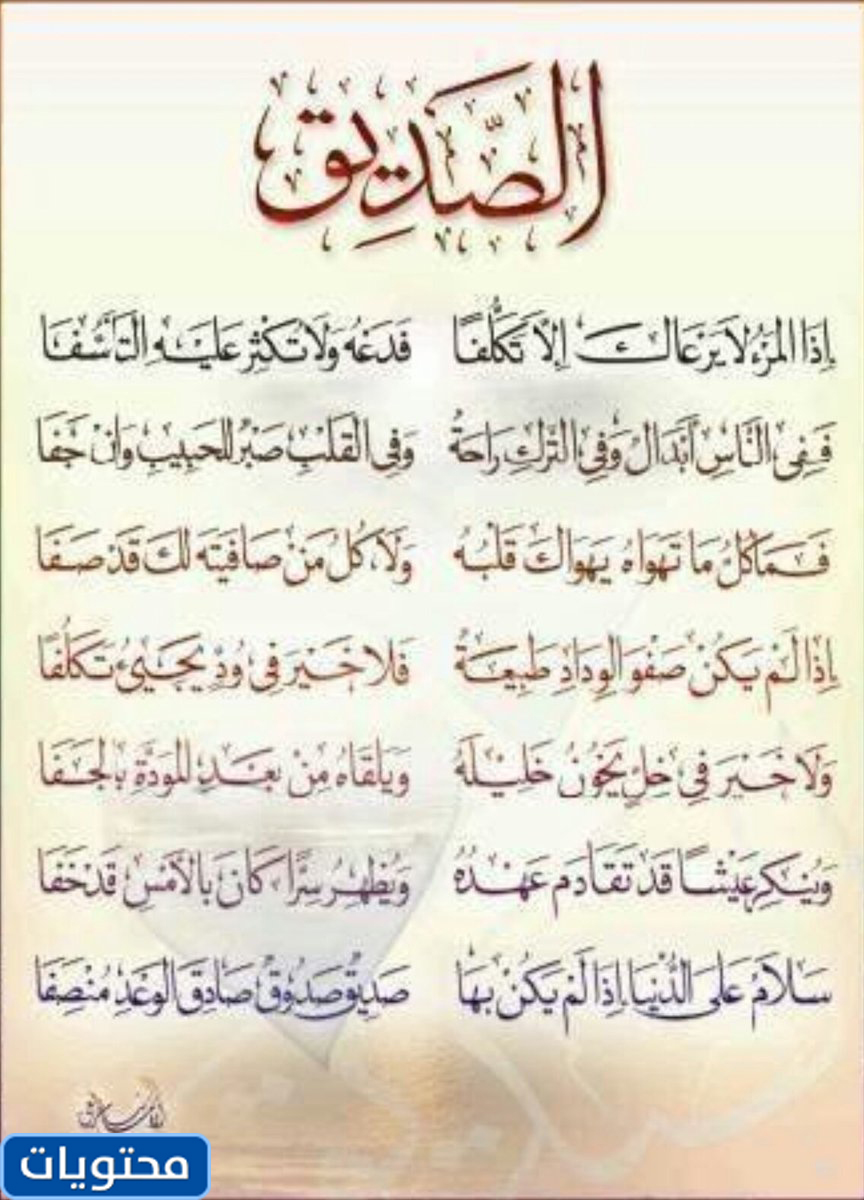 الصَّدِيق
إِذَا المَرْءُ لَا يَرْعَاكَ إِلَّا تَكَلُّفًا فَدَعْهُ وَلَا تُكْثِرْ عَلَيْهِ التَّأَسُّفَا
فَفِي النَّاسِ أَبْدَالٌ وَفِي التَّرْكِ رَاحَةٌ وَفِي القَلْبِ صَبْرٌ للحَبِيبِ وَإِنْ جَفَا
فَمَا كُلُّ مَا تَهْوَاهُ يَهْوَاكَ قَلْبُهُ وَلَا كُلُّ مَنْ صَافَيْتَهُ لَكَ قَدْ صَفَا
إِذَا لَمْ يَكُنْ صَفْوُ الوِدَادِ طَبِيعَةً فَلَا خَيْرَ فِي وُدٍّ يَجِيءُ تَكَلُّفًا
وَلَا خَيْرَ فِي خِلٍّ يَخُونُ خَلِيلَهُ وَيَلْقَاهُ مِنْ بَعْدِ المَوَدَّةِ بِالجَفَا
وَيُنْكِرُ عَيْشًا قَدْ تَقَادَمَ عَهْدُهُ وَيُظْهِرُ سِرًّا كَانَ بِالأَمْسِ قَدْ خَفَا
سَلَامٌ عَلَى الدُّنْيَا إِذَا لَمْ يَكُنْ بِهَا صَدِيقٌ صَدُوقٌ صَادِقُ الوَعْدِ مُنْصِفَا
محتويات